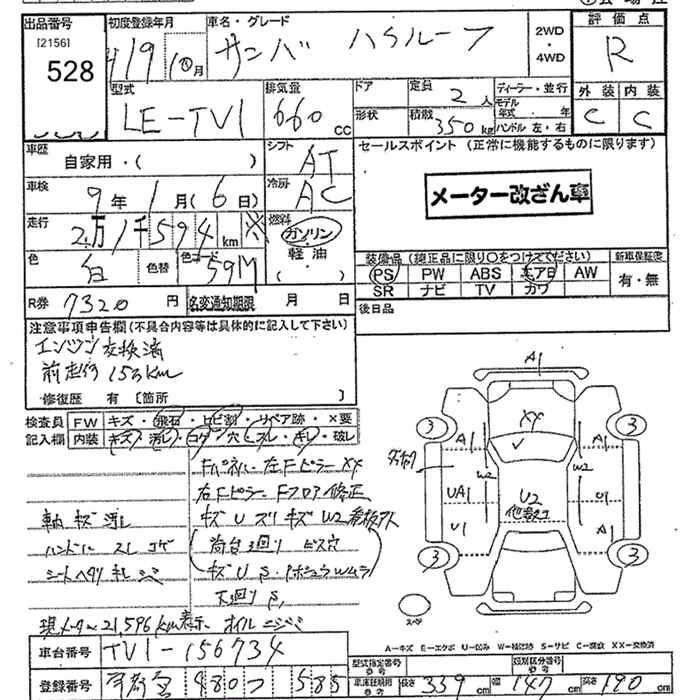 出品番号 初度登録年月 車名・グレード 2WD ・ 4WD 評価点
[2156] 528
19 10月 サンバー ハイルーフ R
型式 LE-TV1 排気量 660 cc
ドア 定員 2人 ディーラー・並行
形状 積載 350kg モデル年式 ・ 年 ハンドル 左・右
外装 内装
C C
車歴 自家用・( ) シフト AT
セールスポイント (正常に機能するものに限ります)
車検 9年 1月 (6日) 冷房 AC
メーター改ざん車
走行 2万1千594km ※ 燃料 ガソリン・軽油・( )
色 白 色替 色コード 59M
装備品 (純正品に限り○をつけてください) 新車保証書
PS PW ABS エアB AW 有・無
SR ナビ TV カワ
R券 7320円 名変通知期限 月 日
後日品
注意事項申告欄(不具合内容等は具体的に記入して下さい)
エンジン交換済
前走行 153km
修復歴 有 〔箇所
検査員 FW キズ・飛石・ヒビ割・リペア跡・×要
記入欄 内装 キズ・汚レ・コゲ・穴・スレ・キレ・破レ
Fパネル・左Fピラー XX
右Fピラー Fフロア修正
軸 キズ 汚レ キズ U ズリ キズ W2 看板アト
ハンドル スレ コゲ 荷台3廻り ビス穴
シートヘタリ キレ シミ
下廻り S,
現メーター21,596km表示 オイルニジミ
A1
3 3
XX
A1 A1
W2
UA1 U2 U1
U1 A1
3 3
スペア
A-キズ E-エクボ U-凹み W-補修跡 S-サビ C-腐食 XX-交換済
車台番号 TV1-156734
型式指定番号 類別区分番号
登録番号 4807 585
長さ 339cm 幅 147cm 高さ 190cm